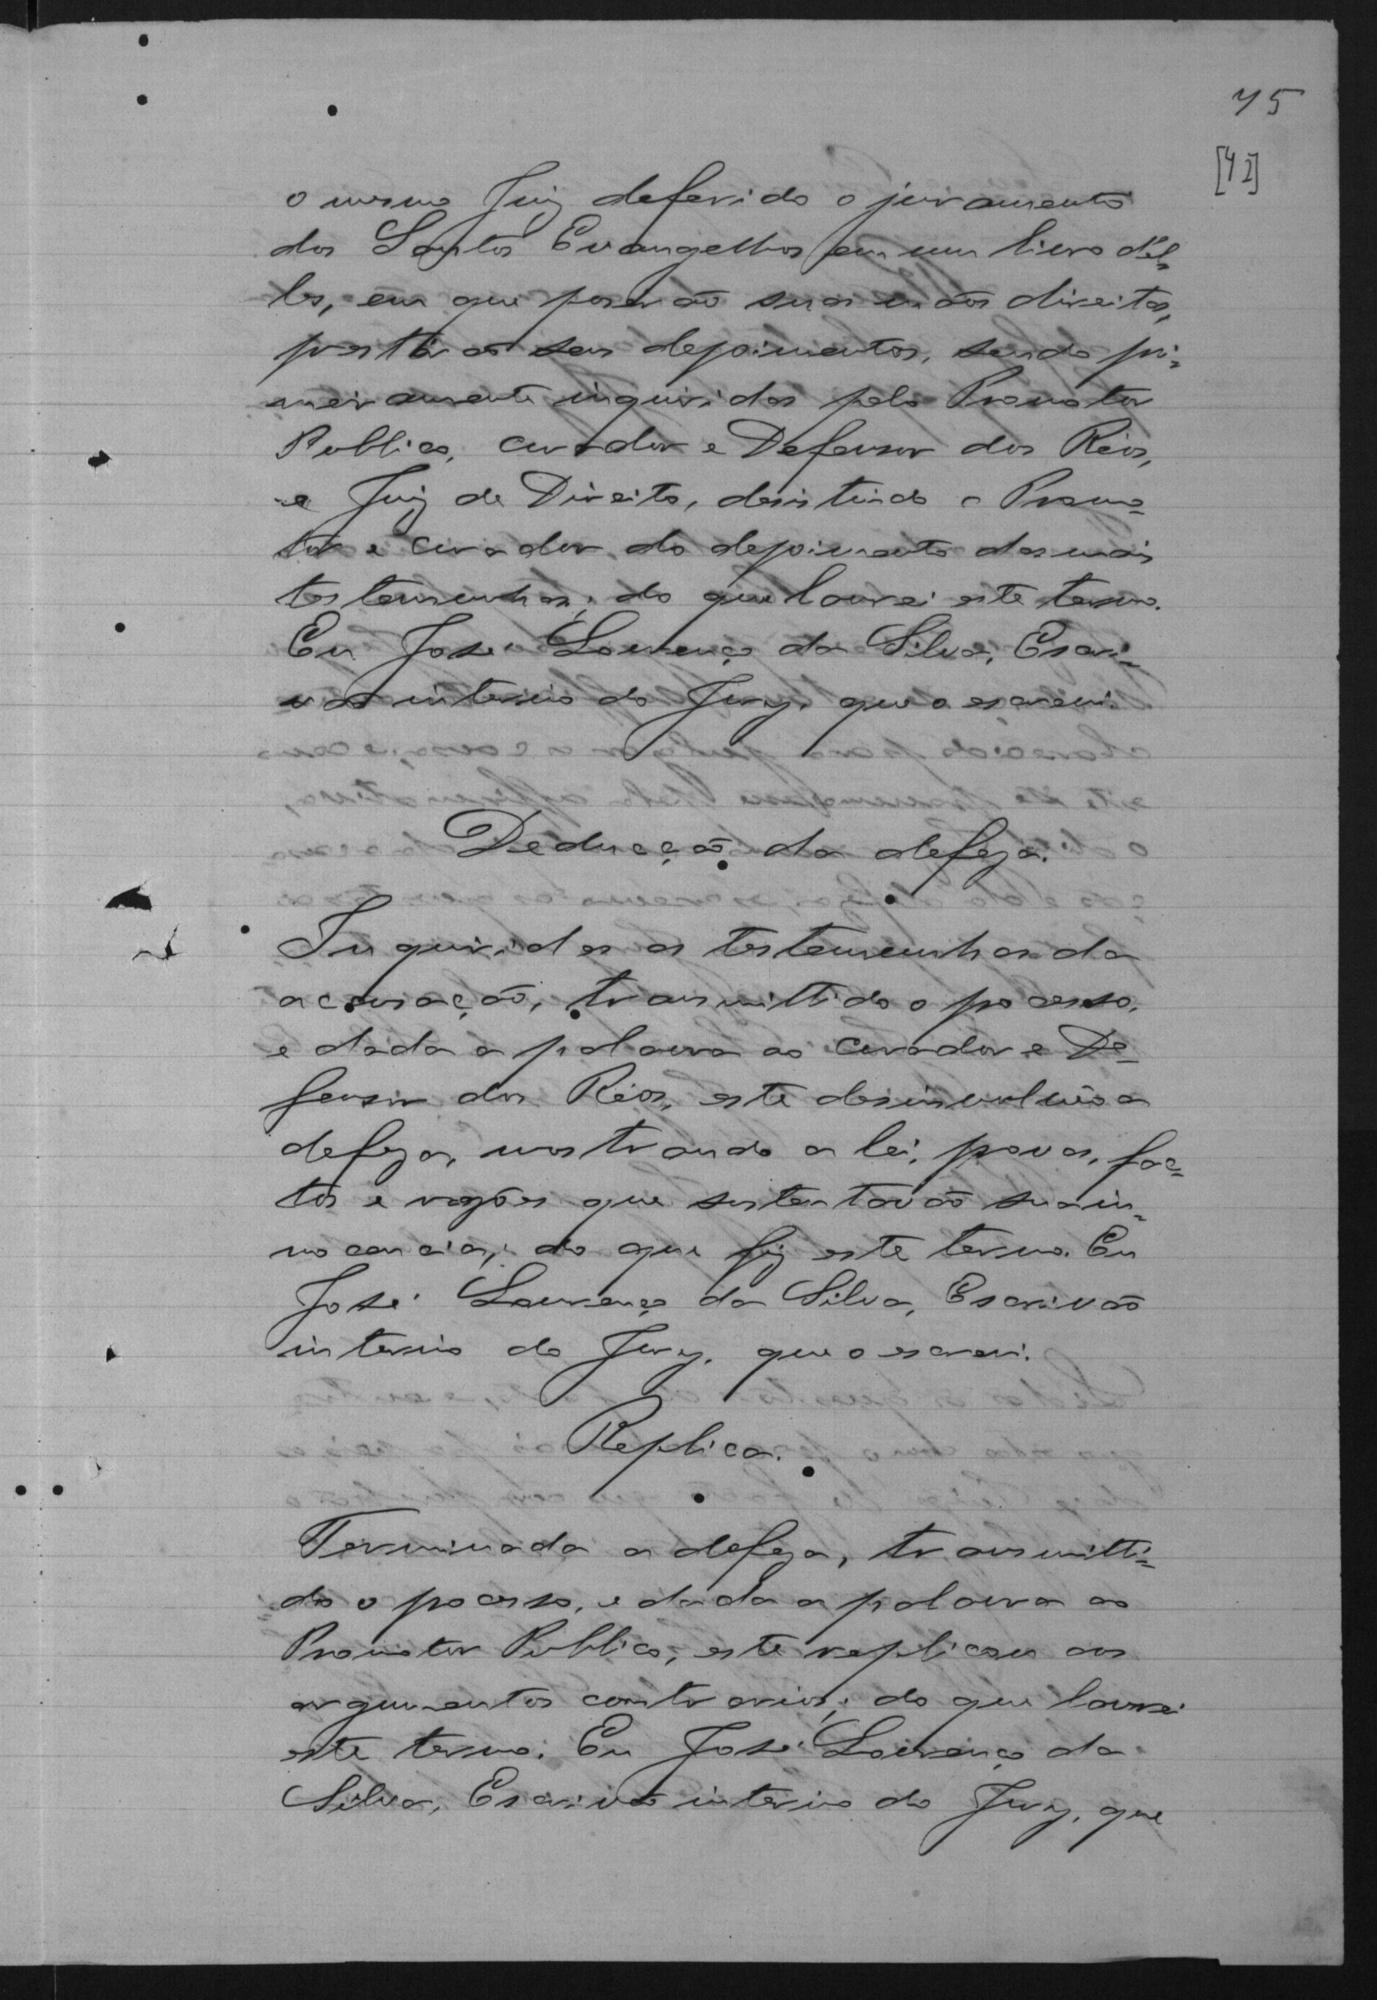 75
[42]
o mesmo Juiz deferido o juramento
dos Santos Evangelhos em um livro d'el-
les, em que poserão suas mãos direitas,
prestárão seus depoimentos, sendo pri-
meiramente inquiridas pelo Promotor
Publico, Curador e Defensor dos Réos,
e Juiz de Direito, desistindo o Promo-
tor e Curador do depoimento das mais
testemunhas; do que lavrei este termo.
Eu José Lourenço da Silva, Escri-
vão interino do Jury, que o escrevi.
Deducção da defeza.
Inquiridas as testemunhas da
acusação, transmittido o processo,
e dada a palavra ao Curador e De-
fensor dos Réos, este desinvolvêo a
defeza, mostrando a lei, provas, fac-
tos e rasões que sustentavão sua in-
nocencia; do que fiz este termo. Eu
José Lourenço da Silva, Escrivão
interino do Jury, que o escrevi.
Replica.
Terminada a defeza, transmitti-
do o processo, e dada a palavra ao
Promotor Publico, este replicou aos
argumentos contrarios; do que lavrei
este termo. Eu José Lourenço da
Silva, Escrivão interino do Jury, que